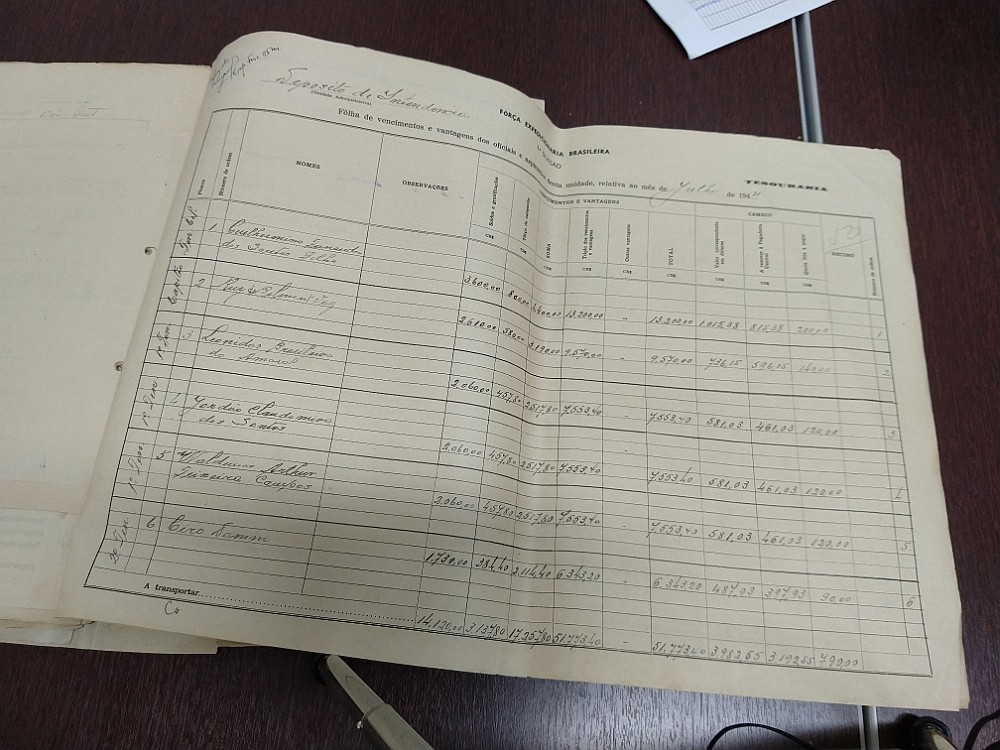 Deposito de Intendencia
(Unidade Administrativa)
FÔRÇA EXPEDICIONÁRIA BRASILEIRA
1.ª DIVISÃO
TESOURARIA
Fôlha de vencimentos e vantagens dos oficiais e desta unidade, relativa ao mês de Julho de 1944
Número de ordem
NOMES
OBSERVAÇÕES
VENCIMENTOS E VANTAGENS
CAMBIO
Soldos e gratificações
SOMA
Triplo dos vencimentos e vantagens
Outras vantagens
TOTAL
Valor correspondente em dólares
A remeter à Pagadoria Central
Quota fixa a pagar
RECIBO
Número de ordem
CR$ CR$ CR$ CR$ CR$ CR$
1 Guilhermino dos Santos Filho
3.600,00 800,00 4.400,00 13.200,00 - 13.200,00 1.015,38 815,38 200,00 1
Capitão 2 Ruy de Belmont Vaz
2.610,00 580,00 3.190,00 9.570,00 - 9.570,00 736,15 596,15 140,00 2
1º Ten 3 Leonidas Brasileiro do Amaral
2.060,00 457,80 2.517,80 7.553,40 - 7.553,40 581,03 461,03 120,00 3
1º Ten 4 Jordão Claudomiro dos Santos
2.060,00 457,80 2.517,80 7.553,40 - 7.553,40 581,03 461,03 120,00 4
1º Ten 5 Waldemar Arthur Teixeira Campos
2.060,00 457,80 2.517,80 7.553,40 - 7.553,40 581,03 461,03 120,00 5
2º Ten 6 Ciro
1.730,00 384,40 2.114,40 6.343,20 - 6.343,20 487,93 397,93 90,00 6
A transportar
14.120,00 3.137,80 17.257,80 51.773,40 - 51.773,40 3.982,55 3.192,55 790,00